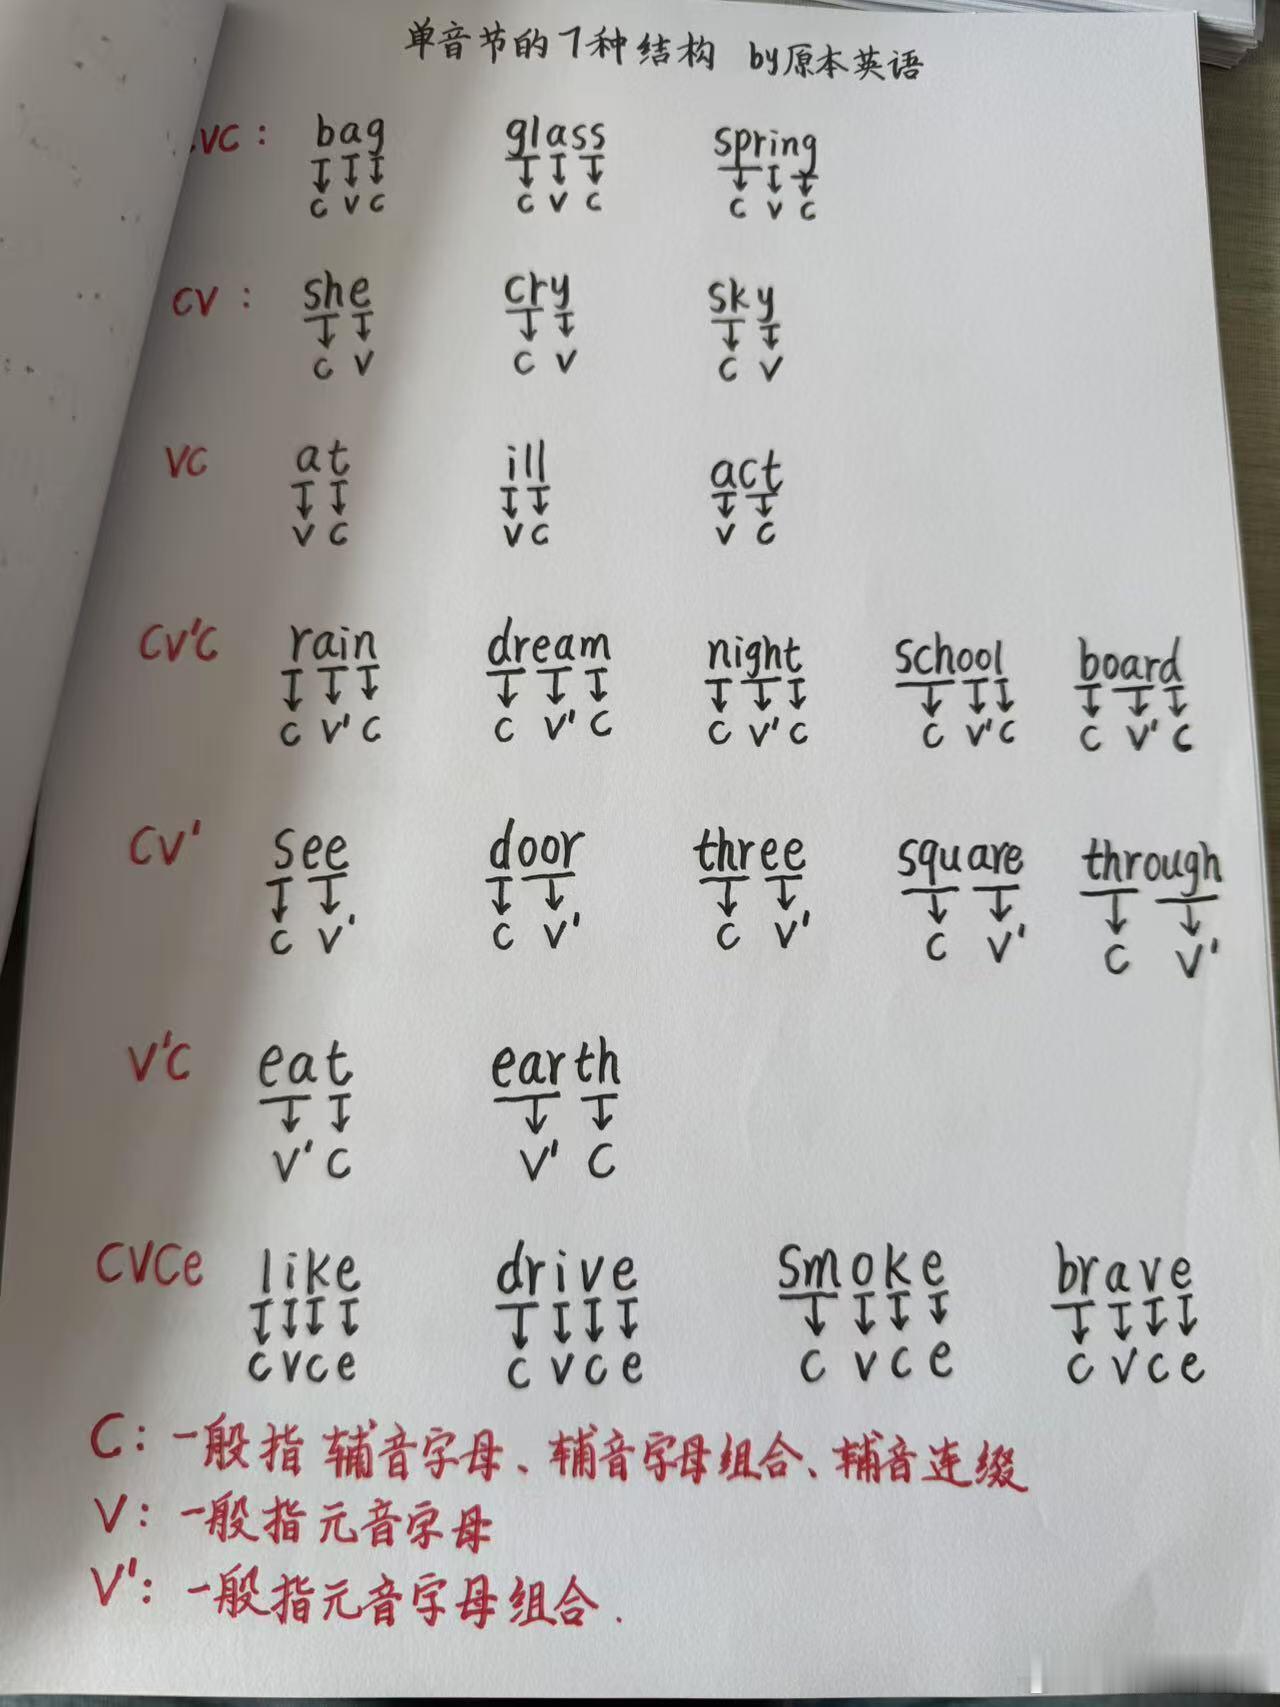 单音节的7种结构 by原本英语
VC: bag glass spring
C V C C V C C V C
CV: she cry sky
C V C V C V
VC at ill act
V C V C V C
CV'C rain dream night school board
C V' C C V' C C V' C C V' C C V' C
CV' see door three square through
C V' C V' C V' C V' C V'
V'C eat earth
V' C V' C
CVCe like drive smoke brave
C V C e C V C e C V C e C V C e
C: 一般指 辅音字母、辅音字母组合、辅音连缀
V: 一般指元音字母
V': 一般指元音字母组合.